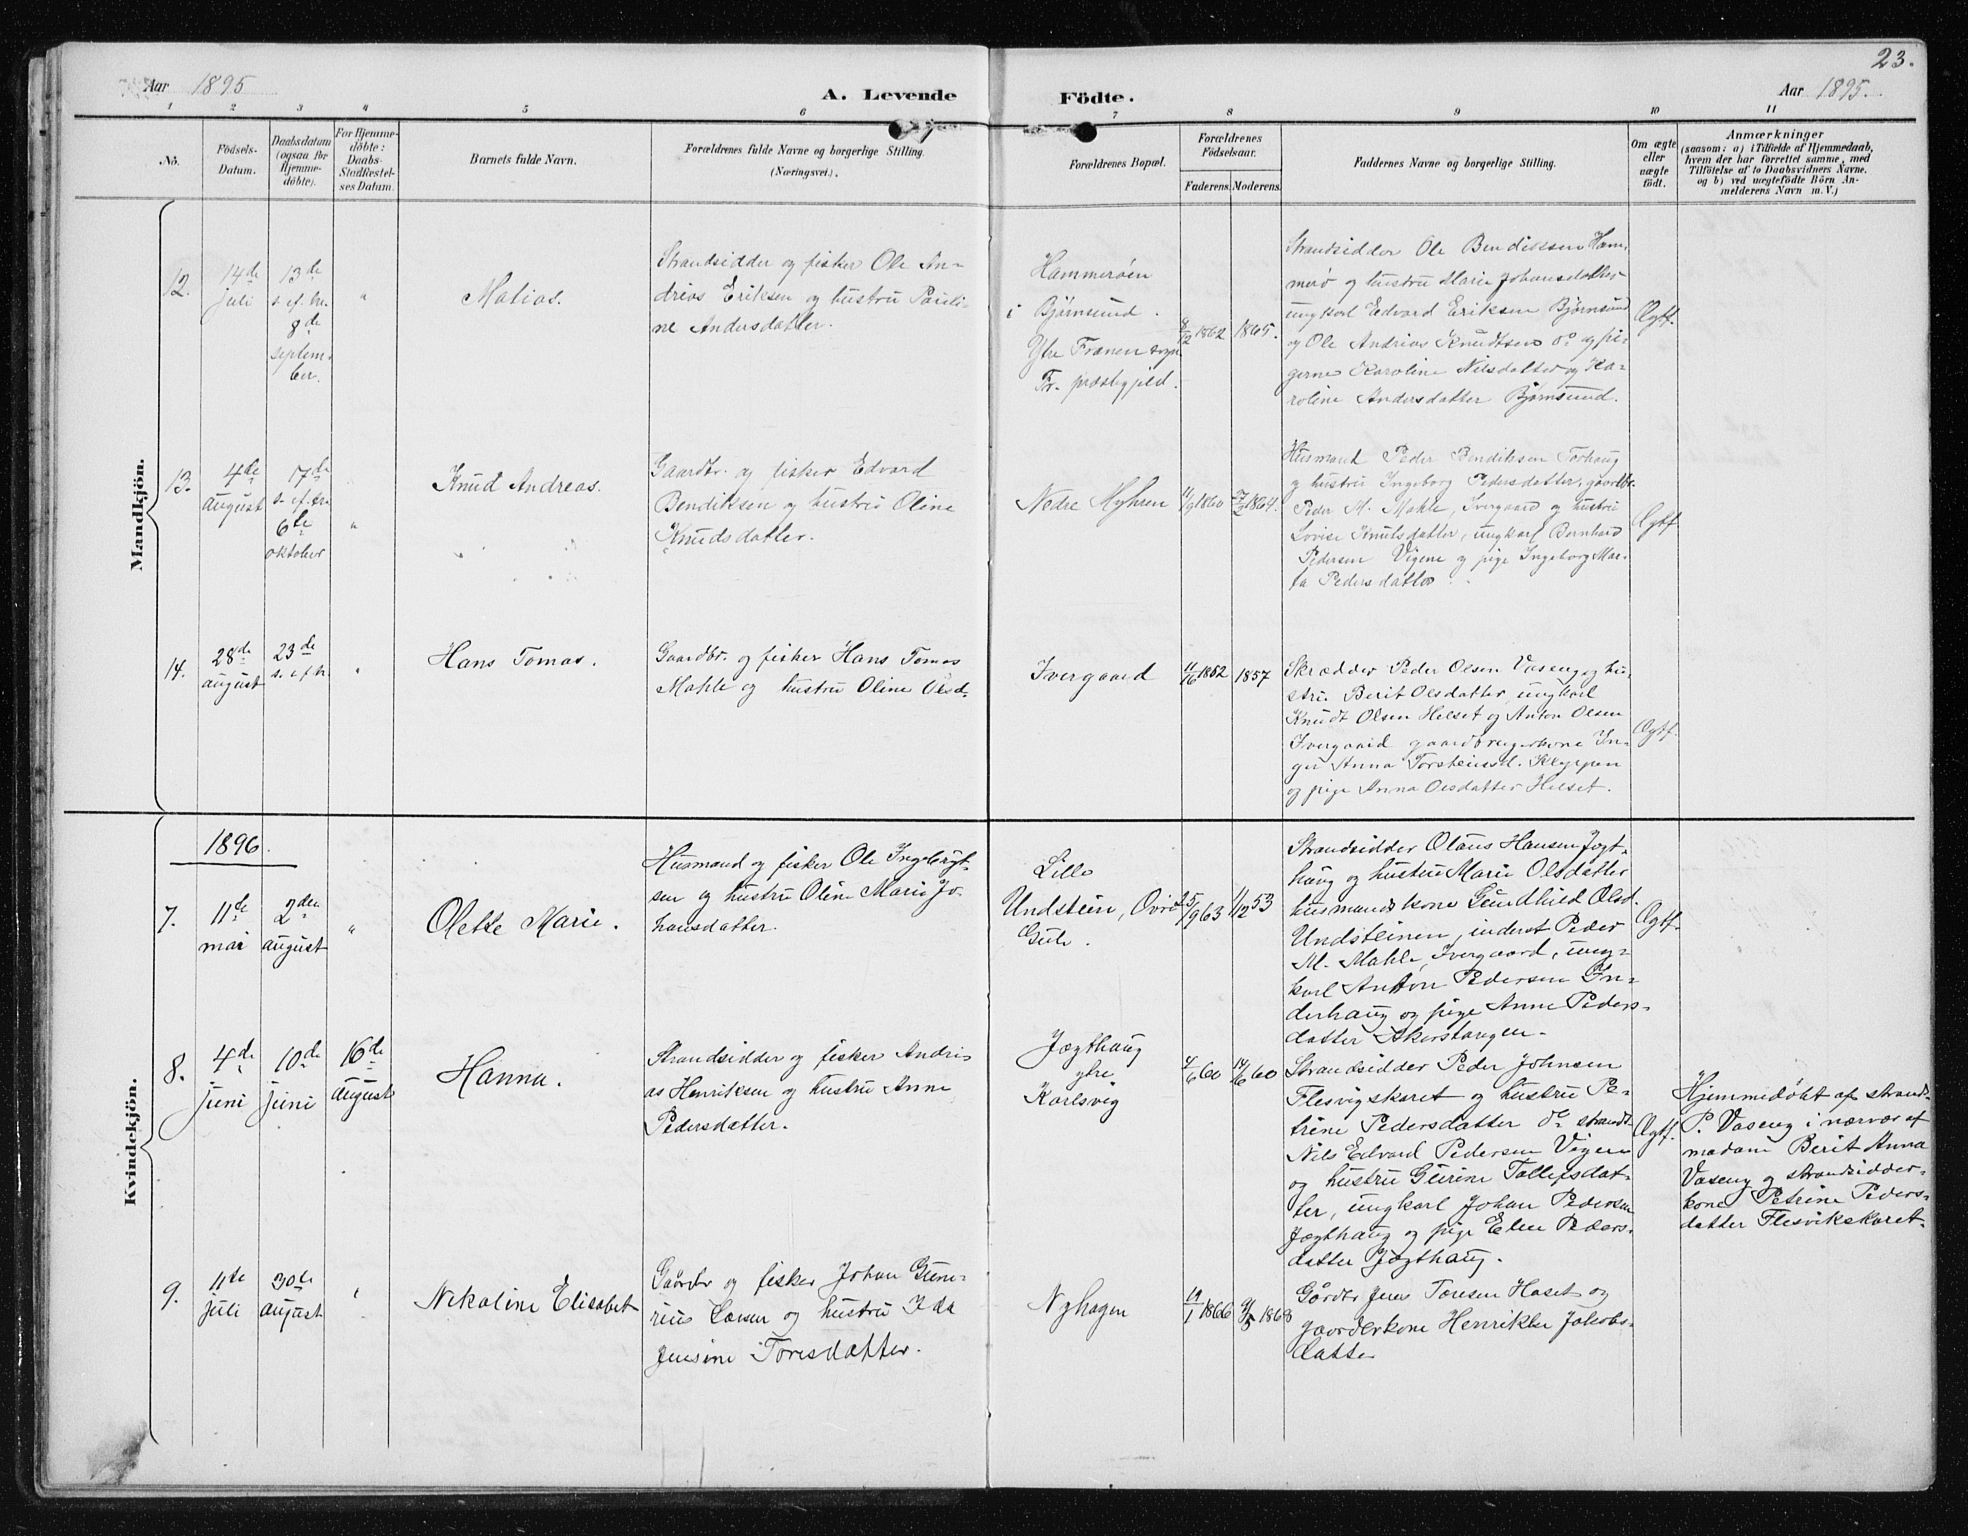 23.
Aar 1895
A. Levende Födte.
Aar 1895.
1 2 3 4 5 6 7 8 9 10 11
No.
Födsels-
Datum.
Daabsdatum
(ogsaa for
Hjemme-
döbte).
For Hjemme-
döbte:
Daabs-
Stadfæstel-
ses Datum.
Barnets fulde Navn.
Forældrenes fulde Navne og borgerlige Stilling.
(Næringsvei).
Forældrenes Bopæl.
Forældrenes
Födselsaar.
Faderens. Moderens.
Faddernes Navne og borgerlige Stilling.
Om ægte
eller
uægte
födt.
Anmærkninger
(saasom: a) i Tilfælde af Hjemmedaab,
hvem der har forrettet samme, med
Tilföielse af to Daabsvidners Navne.
og b) ved uægtefödte Börn An-
melderens Navn m. V.)
Mandkjön.
12.
14de
juli
13de
s. ef. tr.
8de
septem-
ber.
"
Matias.
Strandsidder og fisker Ole An-
drias Eriksen og hustru Pauli-
ne Andersdatter.
Hammerøen
i Bjørnsund.
Ytre Frænen sogn
Fr. præstegjeld.
8/12 1862
1865.
Strandsidder Ole Bendiksen Ham-
merø og hustru Marie Johansdatter
ungkarl Edvard Eriksen Bjørnsund
og Ole Andrias Knudtsen do og pi-
gerne Karoline Nilsdatter og Ka-
roline Andersdatter Bjørnsund.
Ægtf.
13.
4de
august
17de
s. ef. tr.
6te
oktober
"
Knud Andreas.
Gaardbr. og fisker Edvard
Bendiksen og hustru Oline
Knudsdatter.
Nedre Myhren
11/9 1860
27/2 1864.
Husmand Peder Bendiksen Torhaug
og hustru Ingeborg Pedersdatter, gaardbr.
Peder M. Mahle, Ivergaard og hustru
Lovise Knutsdatter, ungkarl Bernhard
Pedersen Vigene og pige Ingeborg Mar-
ta Pedersdatter
Ægtf
14.
28de
august
23de
s. ef. tr.
"
Hans Tomas.
Gaardbr. og fisker Hans Tomas
Mahle og hustru Oline Olsd.
Ivergaard
11/6 1862
1857
Skrædder Peder Olsen Vaseng og hu-
stru Berit Olsdatter, ungkarl
Knudt Olsen Helset og Anton Olsen
Ivergaard gaardbrugerkone In-
ger Anna Torsteinsd. Kleppen
og pige Anna Olsdatter Helset.
Ægtf.
Kvindekjön.
1896.
7.
11te
mai
2den
august
"
Olette Marie.
Husmand og fisker Ole Ingebrigt-
sen og hustru Oline Marie Jo-
hansdatter.
Lille
Undstein, Øvre
Gule.
25/9 63
11/12 53
Strandsidder Olaus Hansen Jogt-
haug og hustru Marie Olsdatter
husmandskone Gundhild Olsd.
Undsteinen, inderst Peder
M. Mahle, Ivergaard, ung-
karl Anton Pedersen In-
derhaug og pige Anne Peders-
datter Akerstangen.
Ægtf.
8.
4de
juni
10de
juni
16de
august
Hanna.
Strandsidder og fisker Andri-
as Henriksen og hustru Anne
Pedersdatter.
Jægthaug
ytre
Karlsvig
4/6 60
14/6 60
Strandsidder Peder Johnsen
Flesvigskaret og hustru Pe-
trine Pedersdatter do strandsd.
Nils Edvard Pedersen Vigen
og hustru Gurine Tollefsdat-
ter, ungkarl Johan Pedersen
Jægthaug og pige Elen Peders-
datter Jægthaug.
Ægtf.
Hjemmedøbt af strands.
P. Vaseng i nærvær af
madam Berit Anna
Vaseng og strandsidder-
kone Petrine Peders-
datter Flesvikskaret.
9.
11te
juli
30de
august
"
Nikoline Elisabet
Gaardbr og fisker Johan Gune-
rius Larsen og hustru Ida
Jensine Toresdatter.
Nyhagen
19/1 1866
9/5 1868
Gårdbr Jens Toresen Haset og
gaardbrkone Henrikke Jakobs-
datter